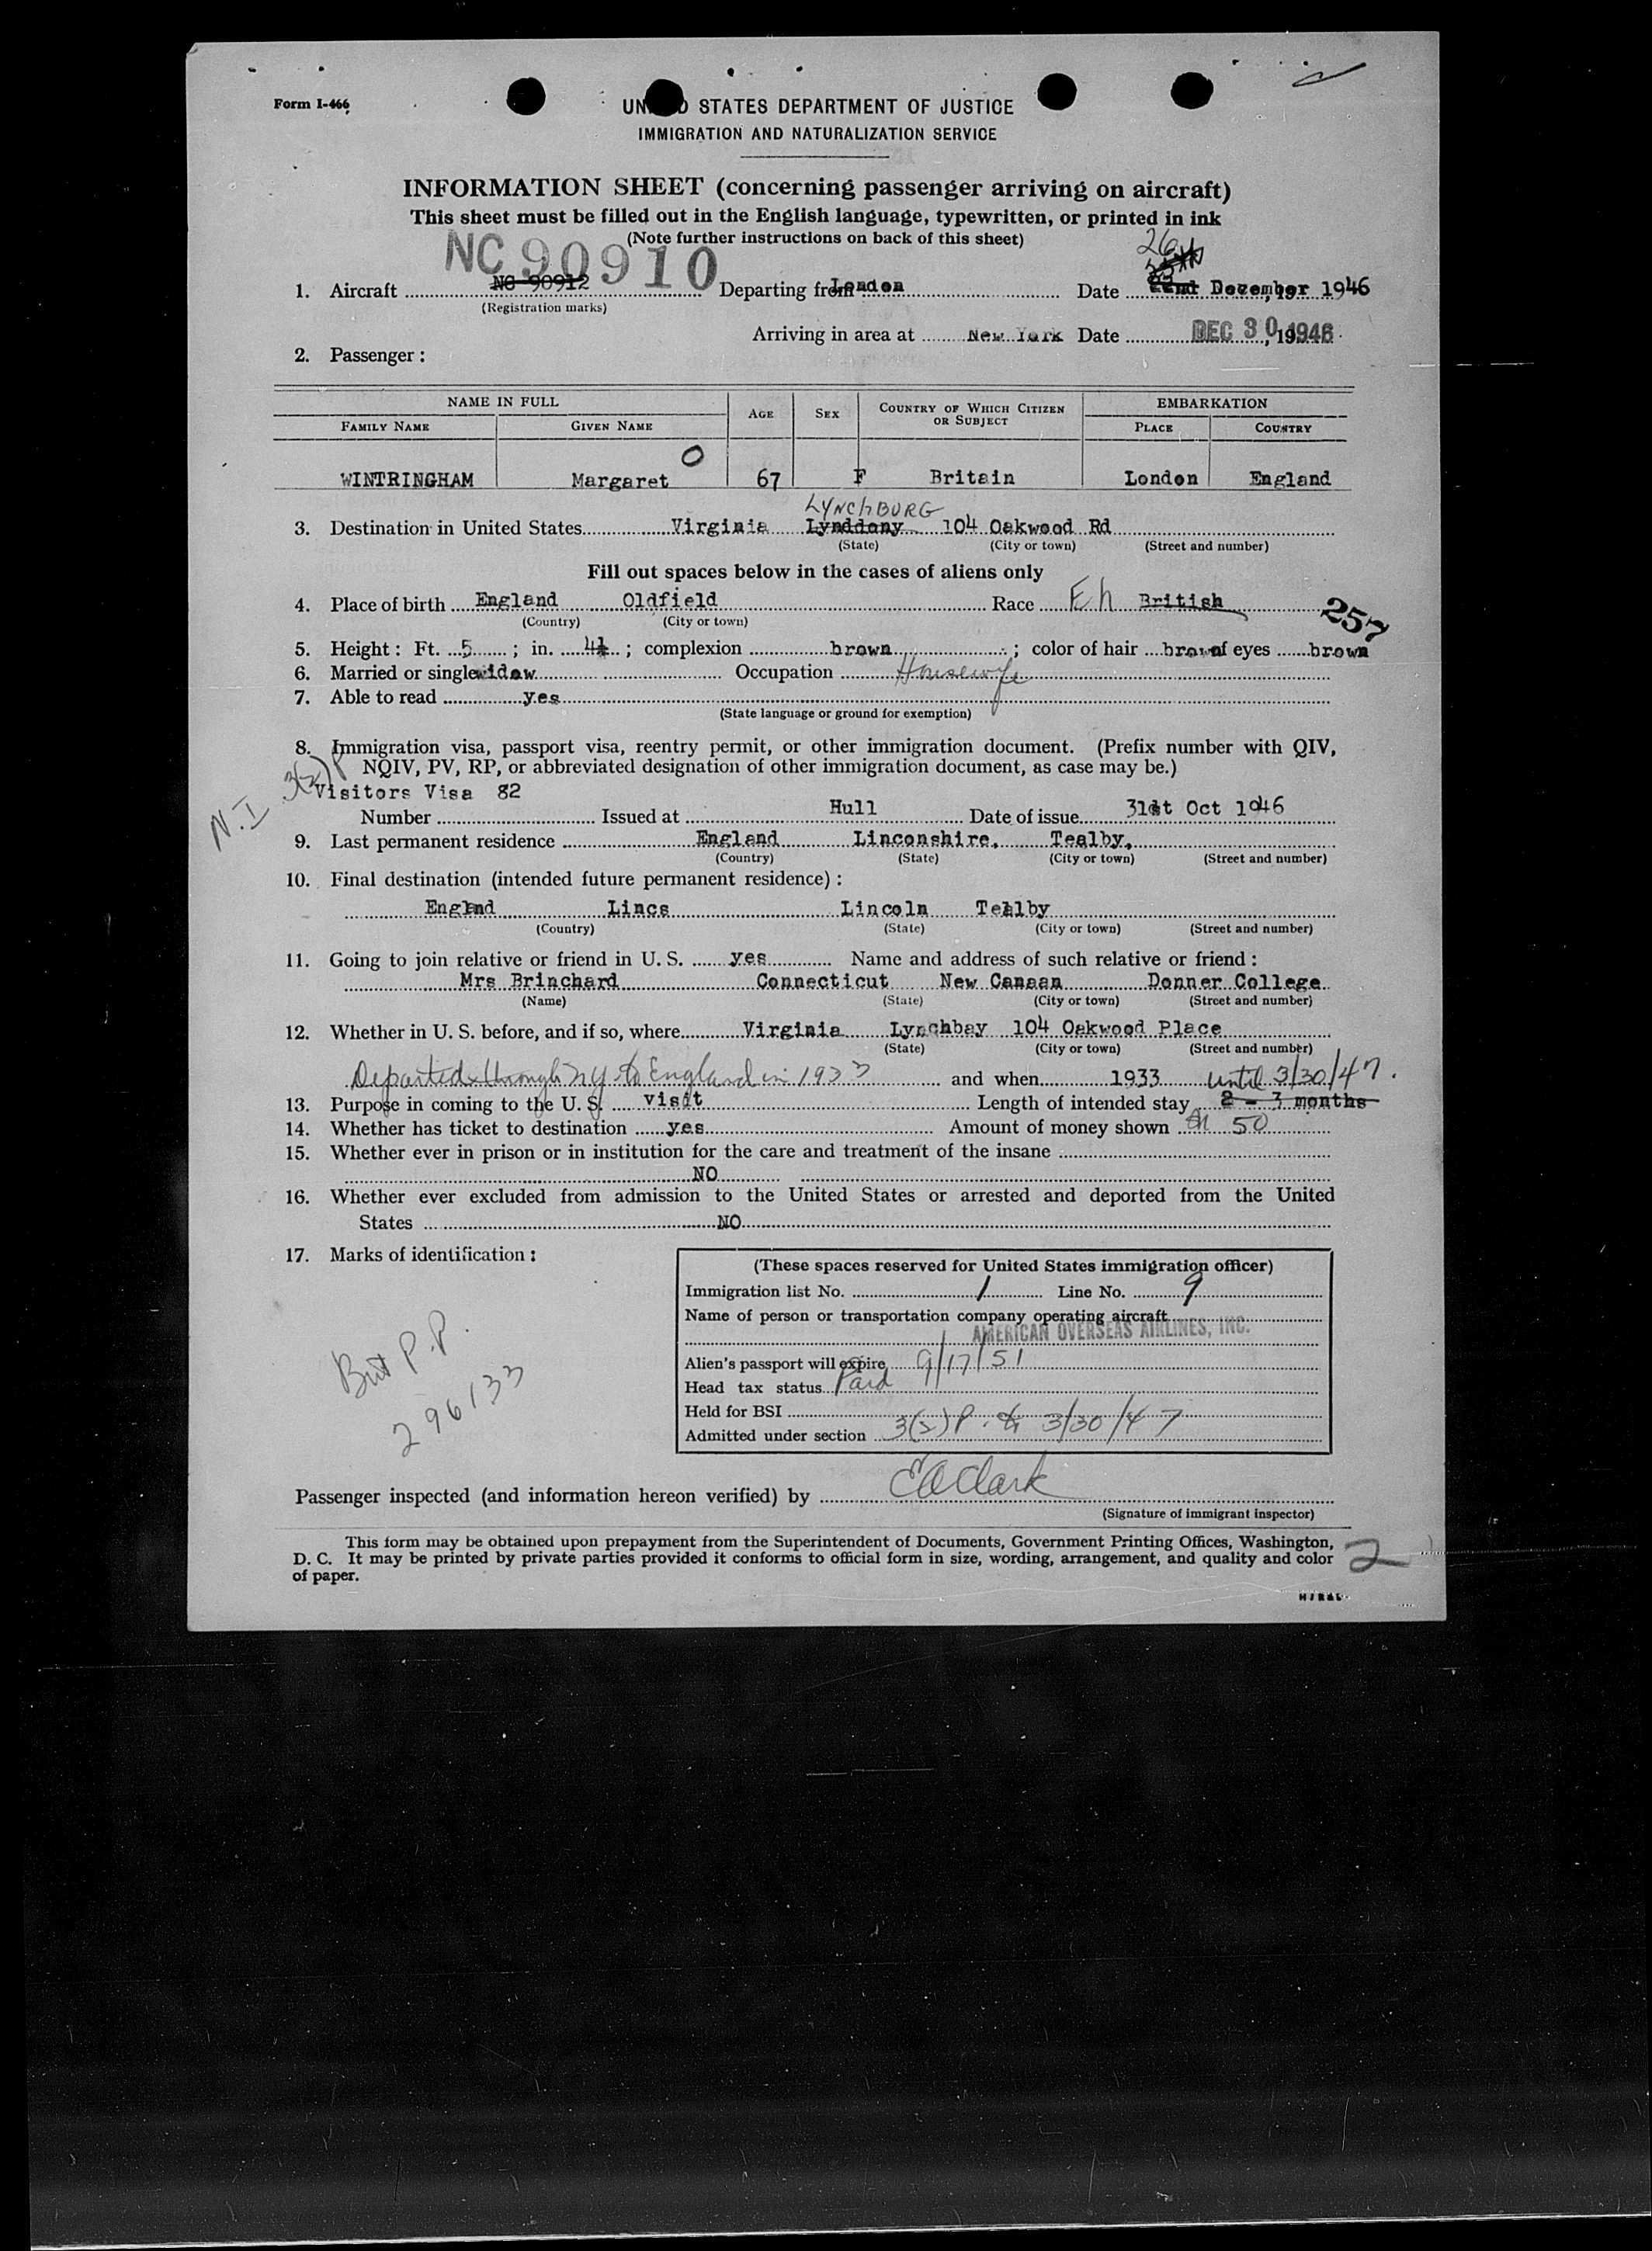 Form I-466
UNITED STATES DEPARTMENT OF JUSTICE
IMMIGRATION AND NATURALIZATION SERVICE
INFORMATION SHEET (concerning passenger arriving on aircraft)
This sheet must be filled out in the English language, typewritten, or printed in ink
(Note further instructions on back of this sheet)
NC 90910
26
1. Aircraft NC 90912 Departing from London Date 22nd December, 19 1946
(Registration marks)
Arriving in area at New York Date DEC 30, 19 1946
2. Passenger:
NAME IN FULL AGE SEX COUNTRY OF WHICH CITIZEN OR SUBJECT EMBARKATION
FAMILY NAME GIVEN NAME PLACE COUNTRY
O
WINTRINGHAM Margaret 67 F Britain London England
LYNChBURG
3. Destination in United States Virginia Lynddony 104 Oakwood Rd
(State) (City or town) (Street and number)
Fill out spaces below in the cases of aliens only
4. Place of birth England Oldfield Race Eh British
(Country) (City or town)
257
5. Height: Ft. 5; in. 4½; complexion brown; color of hair brown of eyes brown
6. Married or single widow Occupation Housewife
7. Able to read yes
(State language or ground for exemption)
8. Immigration visa, passport visa, reentry permit, or other immigration document. (Prefix number with QIV,
NQIV, PV, RP, or abbreviated designation of other immigration document, as case may be.)
N.I 3(2)P
Visitors Visa 82
Number Issued at Hull Date of issue 31st Oct 1946
9. Last permanent residence England Linconshire, Tealby,
(Country) (State) (City or town) (Street and number)
10. Final destination (intended future permanent residence):
England Lincs Lincoln Tealby
(Country) (State) (City or town) (Street and number)
11. Going to join relative or friend in U. S. yes Name and address of such relative or friend:
Mrs Brinchard Connecticut New Canaan Donner College
(Name) (State) (City or town) (Street and number)
12. Whether in U. S. before, and if so, where Virginia Lynchbay 104 Oakwood Place
(State) (City or town) (Street and number)
Departed through NY to England in 1933 and when 1933 until 3/30/47.
13. Purpose in coming to the U. S. visit Length of intended stay 2 - 3 months
14. Whether has ticket to destination yes Amount of money shown 50
15. Whether ever in prison or in institution for the care and treatment of the insane
NO
16. Whether ever excluded from admission to the United States or arrested and deported from the United
States NO
17. Marks of identification:
Brit P.P.
296133
(These spaces reserved for United States immigration officer)
Immigration list No. 1 Line No. 9
Name of person or transportation company operating aircraft
AMERICAN OVERSEAS AIRLINES, INC.
Alien's passport will expire 9/17/51
Head tax status Paid
Held for BSI
Admitted under section 3(2)P. to 3/30/47
Passenger inspected (and information hereon verified) by EA Clark
(Signature of immigrant inspector)
This form may be obtained upon prepayment from the Superintendent of Documents, Government Printing Offices, Washington,
D. C. It may be printed by private parties provided it conforms to official form in size, wording, arrangement, and quality and color
of paper.
2